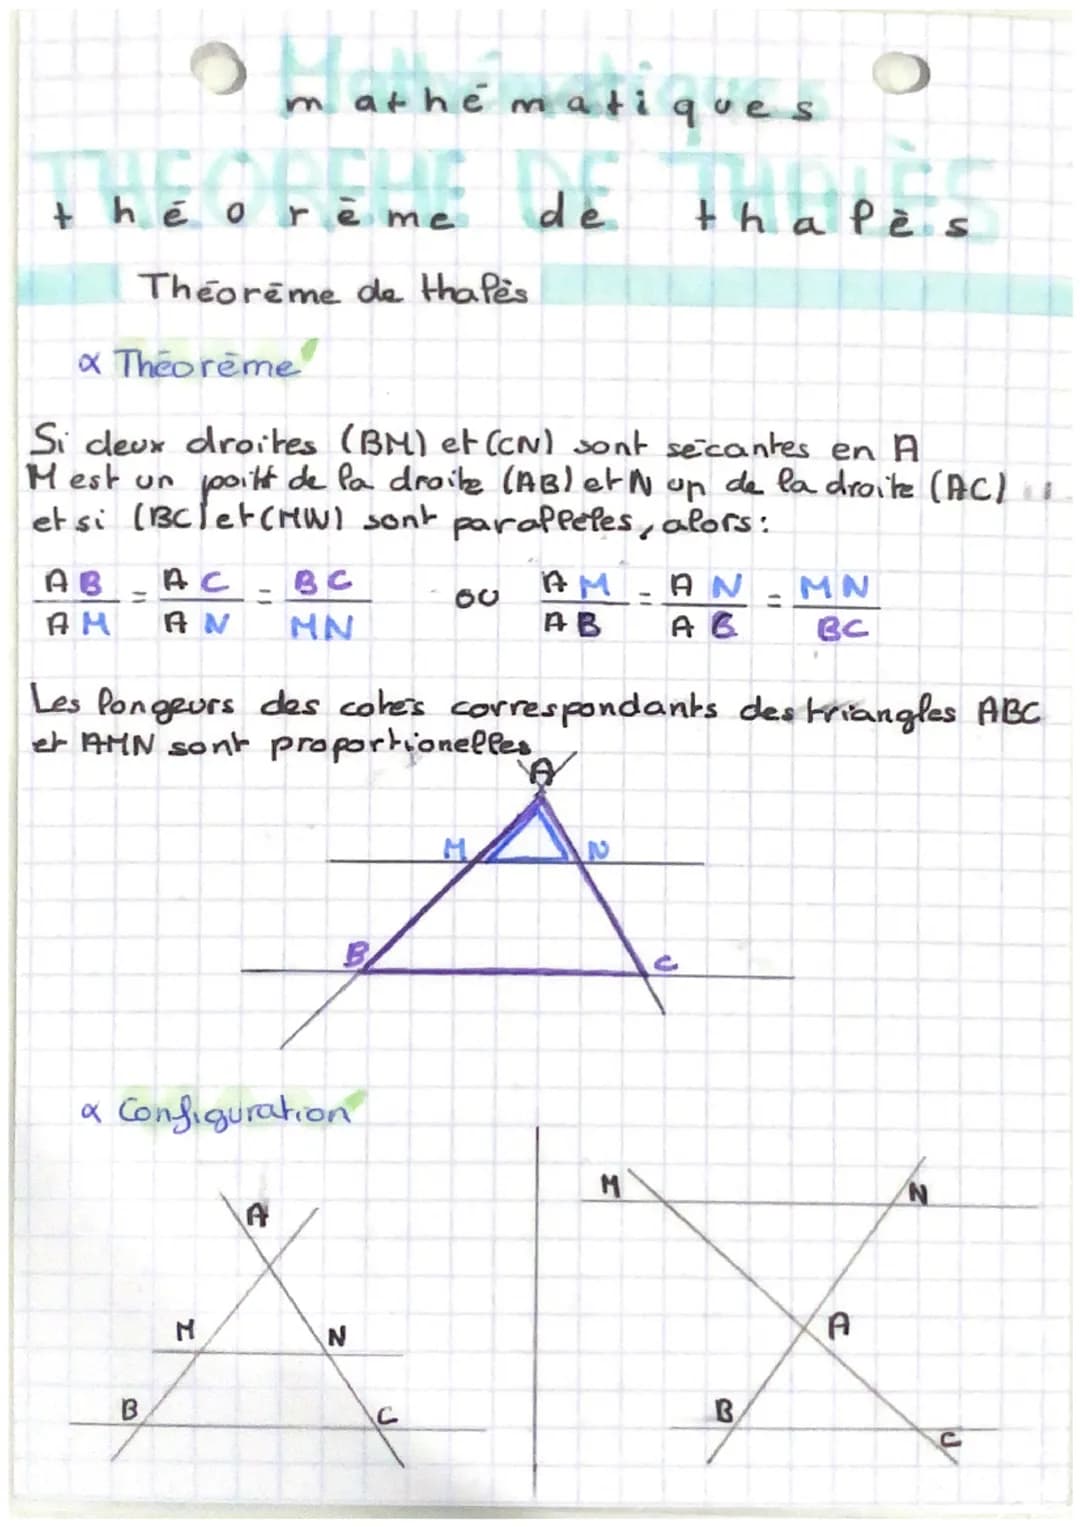 Mathématiques
mathēmatiques
THEOREME DE THALÈS
thēorēme de thalès
Thēorēme de thalès
∝ Thēorēme
Si deux droites (BM) et (CN) sont sēcantes en A
M est un point de la droite (AB) et N un de la droite (AC)
et si (BC) et (MN) sont parallèles, alors:
AB/AM = AC/AN = BC/MN ou AM/AB = AN/AB = MN/BC
Les longeurs des cotés correspondants des triangles ABC
et AMN sont proportionelles
A
M N
B C
∝ Configuration
M N
A
A
M N
B C
B C